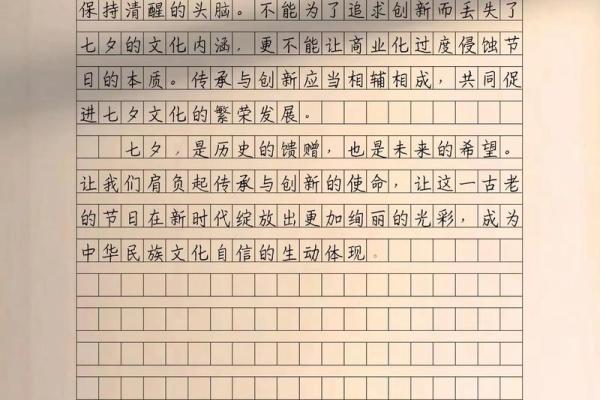 保持清醒的头脑。不能为了追求创新而丢失了
七夕的文化内涵，更不能让商业化过度侵蚀节
日的本质。传承与创新应当相辅相成，共同促
进七夕文化的繁荣发展。
七夕，是历史的馈赠，也是未来的希望。
让我们肩负起传承与创新的使命，让这一古老
的节日在新时代绽放出更加绚丽的光彩，成为
中华民族文化自信的生动体现。